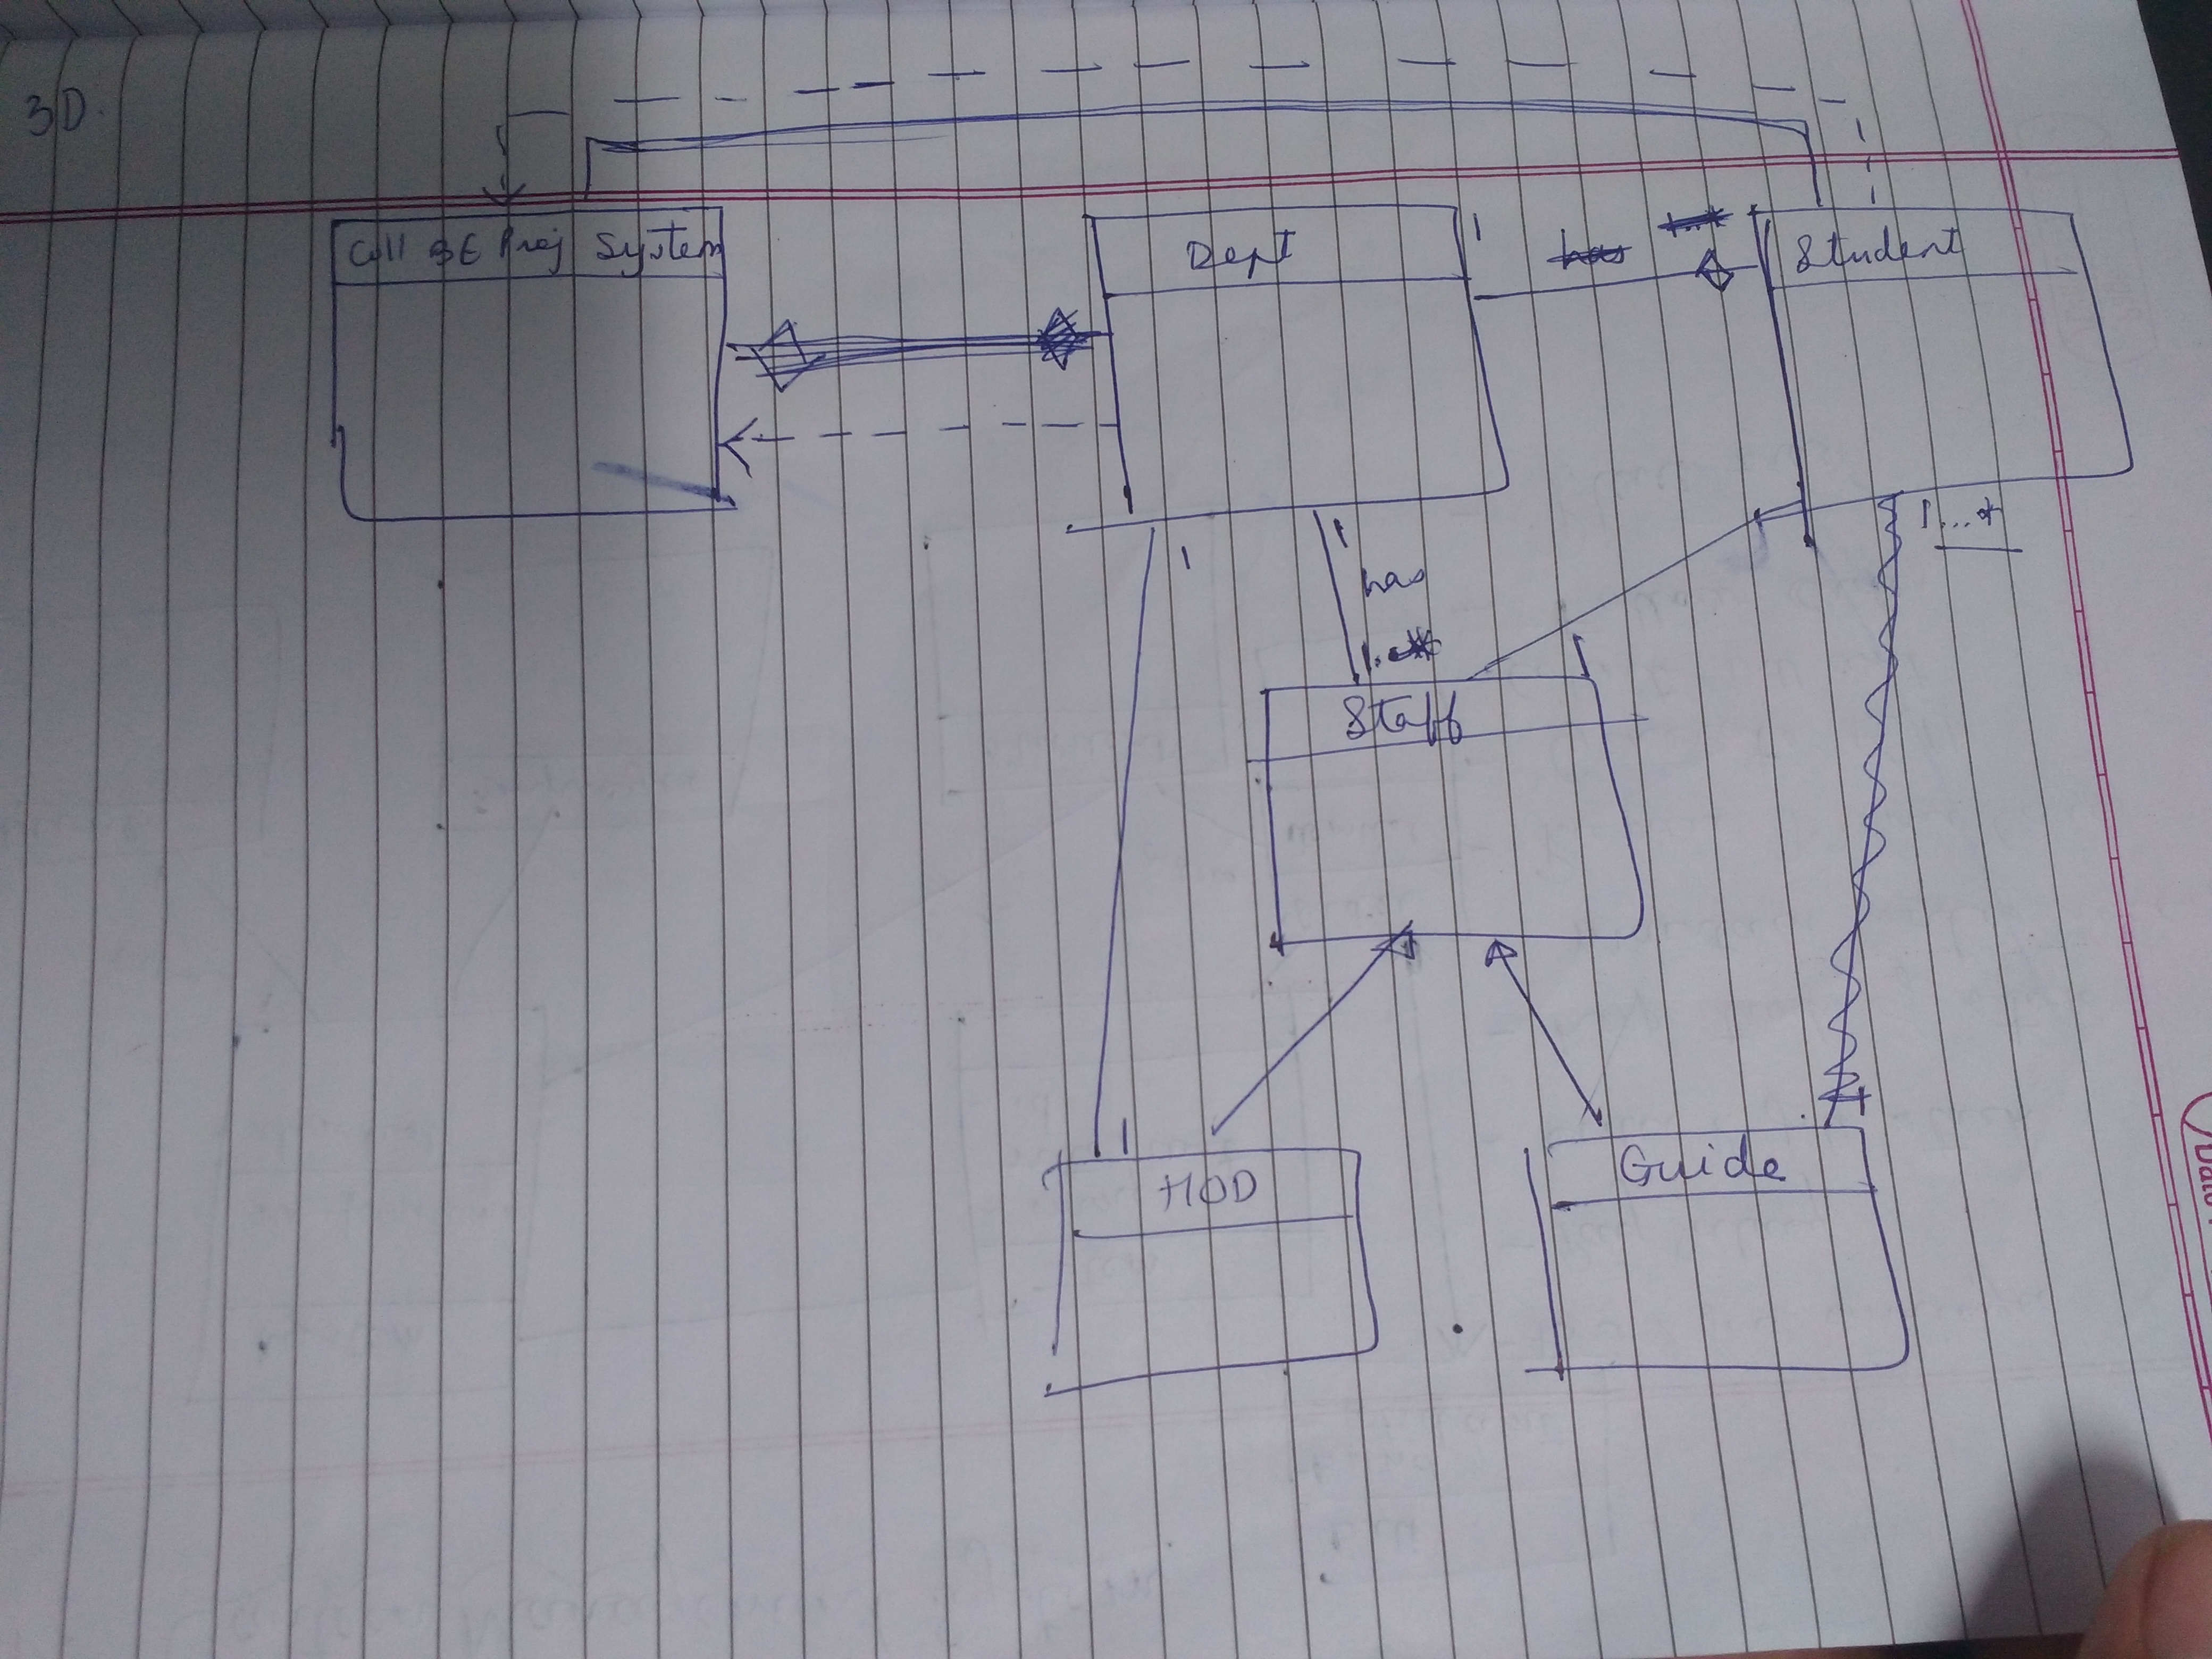 3D.
Coll BE Proj System
Dept
1
has
1..*
Student
1
1
has
1..*
1...*
1
Staff
1
HOD
Guide